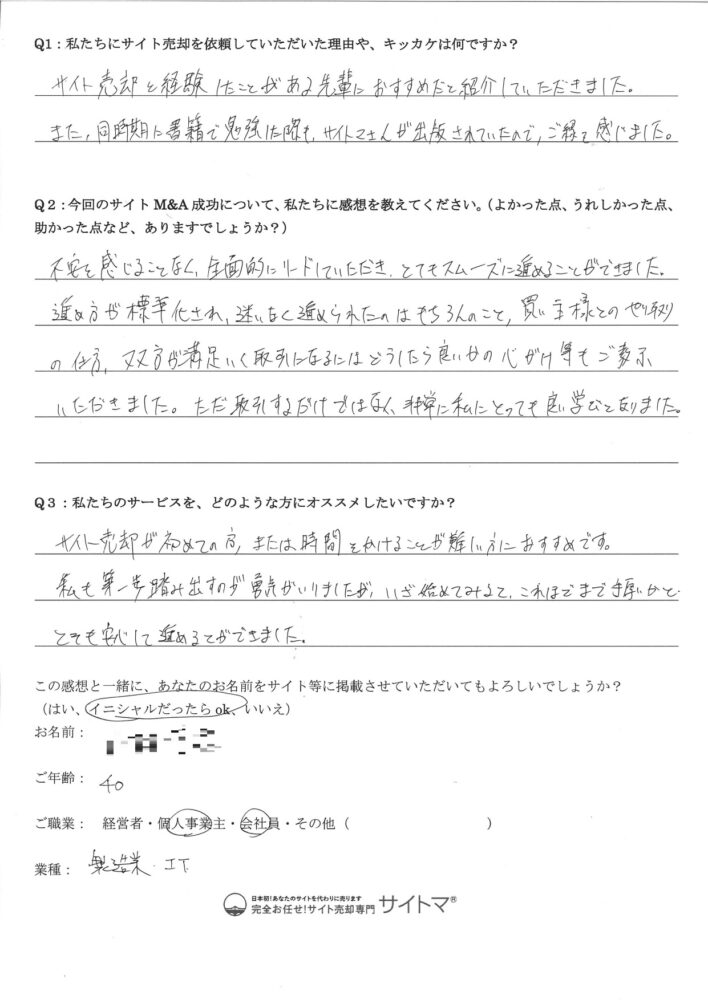 Q1：私たちにサイト売却を依頼していただいた理由や、キッカケは何ですか？
サイト売却を経験したことがある先輩におすすめだと紹介していただきました。
また、同時期に書籍で勉強した際も、サイトマさんが出版されていたので、ご縁を感じました。
Q2：今回のサイト M&A 成功について、私たちに感想を教えてください。（よかった点、うれしかった点、
助かった点など、ありますでしょうか？）
不安を感じることなく、全面的にリードしていただき、とてもスムーズに進めることができました。
進め方が標準化され、迷いなく進められたのはもちろんのこと、買い主様とのやり取り
の仕方、双方が満足いく取引になるにはどうしたら良いかの心がけ等もご教示
いただきました。ただ取引するだけではなく、非常に私にとっても良い学びとなりました。
Q3：私たちのサービスを、どのような方にオススメしたいですか？
サイト売却が初めての方、または時間をかけることが難しい方におすすめです。
私も第一歩踏み出すのが勇気がいりましたが、いざ始めてみると、これほどまで手厚いかと
とても安心して進めるとができました。
この感想と一緒に、あなたのお名前をサイト等に掲載させていただいてもよろしいでしょうか？
（はい、イニシャルだったら ok、いいえ）
お名前：
ご年齢： 40
ご職業： 経営者・個人事業主・会社員・その他（ ）
業種： 製造業・IT
日本初！あなたのサイトを代わりに売ります
完全お任せ！サイト売却専門 サイトマ®